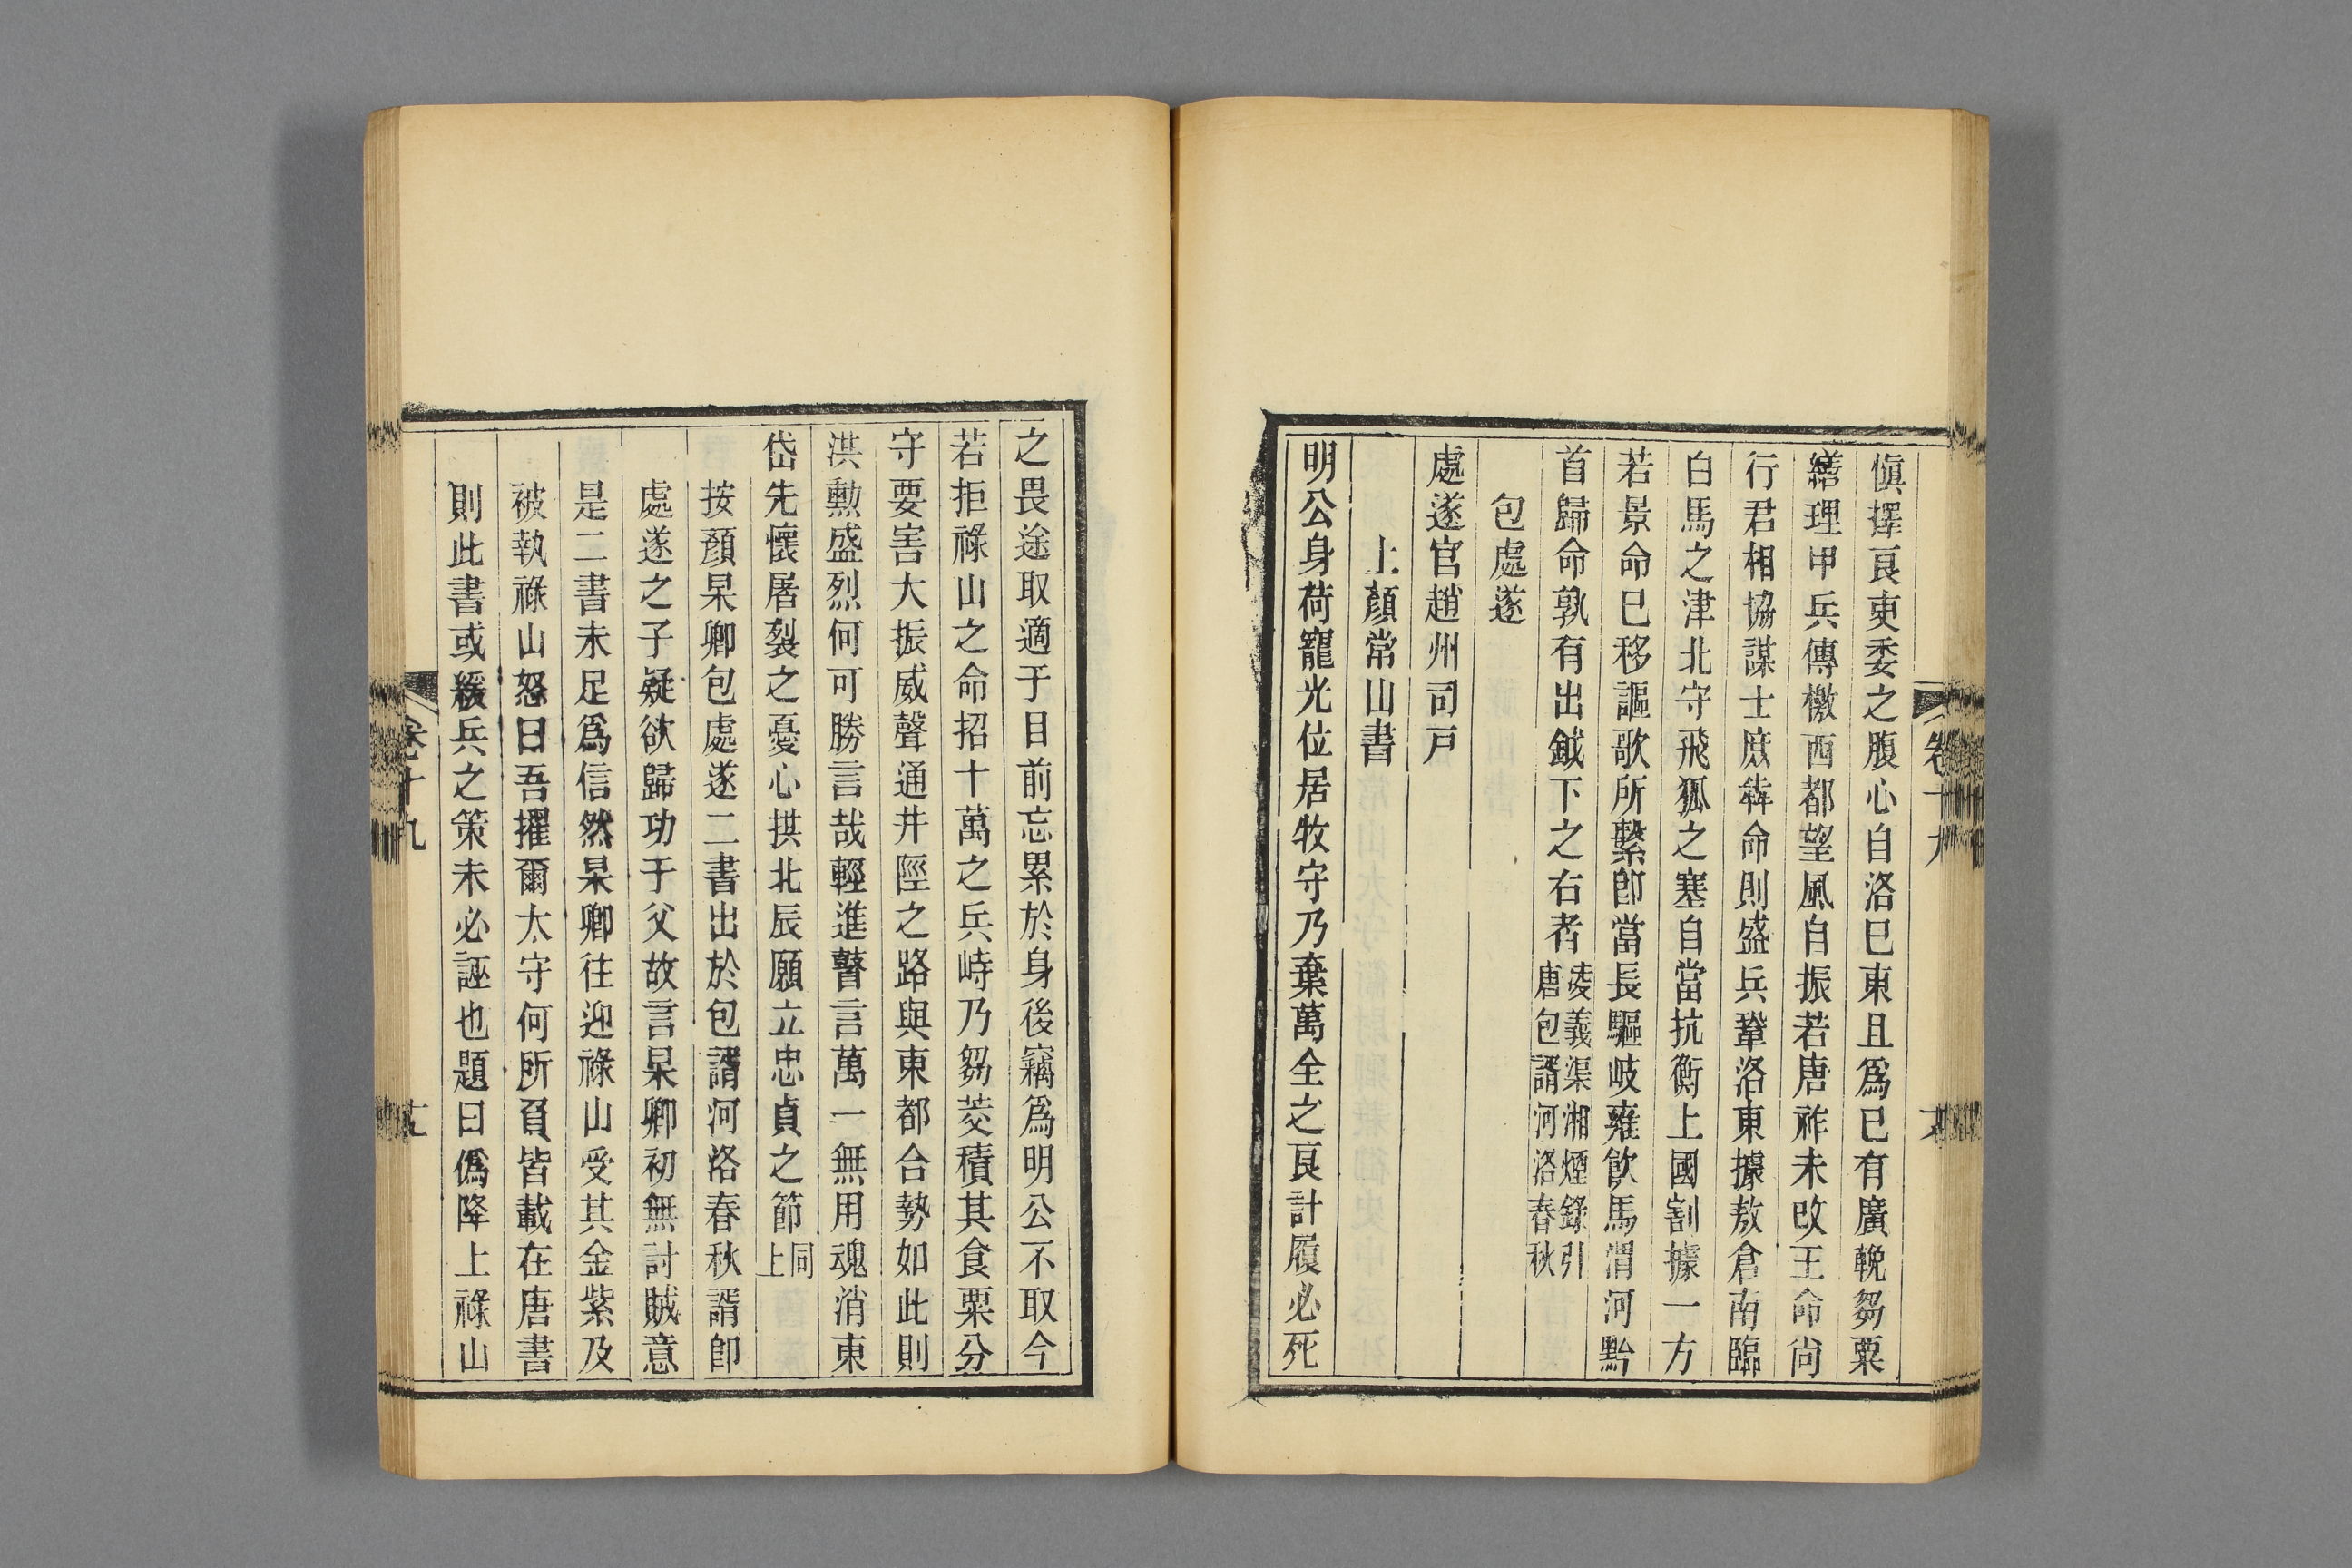 愼擇良吏委之腹心自洛已東且爲已有廣輓芻粟
繕理甲兵傳檄西都望風自振若唐祚未改王命尚
行君相協謀士庶犇命則盛兵鞏洛東據敖倉南臨
白馬之津北守飛狐之塞自當抗衡上國割據一方
若景命已移謳歌所繫卽當長驅岐雍飮馬渭河黔
首歸命孰有出鉞下之右者淩義渠湘煙錄引
唐包諝河洛春秋
包處遂
處遂官趙州司戸
上顏常山書
明公身荷寵光位居牧守乃棄萬全之良計履必死
卷十九
之畏途取適于目前忘累於身後竊爲明公不取今
若拒祿山之命招十萬之兵峙乃芻茭積其食粟分
守要害大振威聲通井陘之路與東都合勢如此則
洪勳盛烈何可勝言哉輕進瞽言萬一無用魂消東
岱先懷屠裂之憂心拱北辰願立忠貞之節同
上
按顏杲卿包處遂二書出於包諝河洛春秋諝卽
處遂之子疑欲歸功于父故言杲卿初無討賊意
是二書未足爲信然杲卿往迎祿山受其金紫及
被執祿山怒曰吾擢爾太守何所負皆載在唐書
則此書或緩兵之策未必誣也題曰僞降上祿山
卷十九